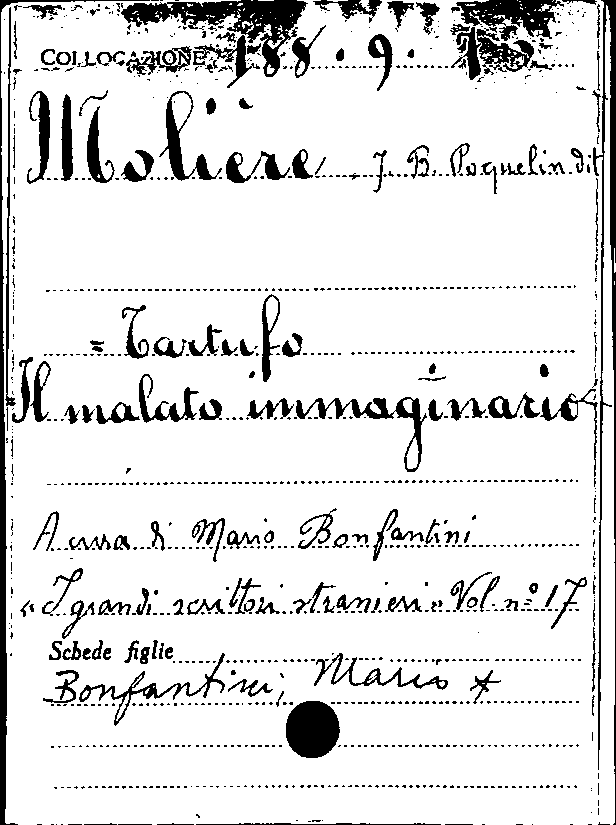 COLLOCAZIONE 188.9.
Molière J. B. Poquelin dit
= Tartufo
Il malato immaginario
A cura di Mario Bonfantini
«I grandi scrittori stranieri» Vol. nº 17
Schede figlie
Bonfantini, Mario *